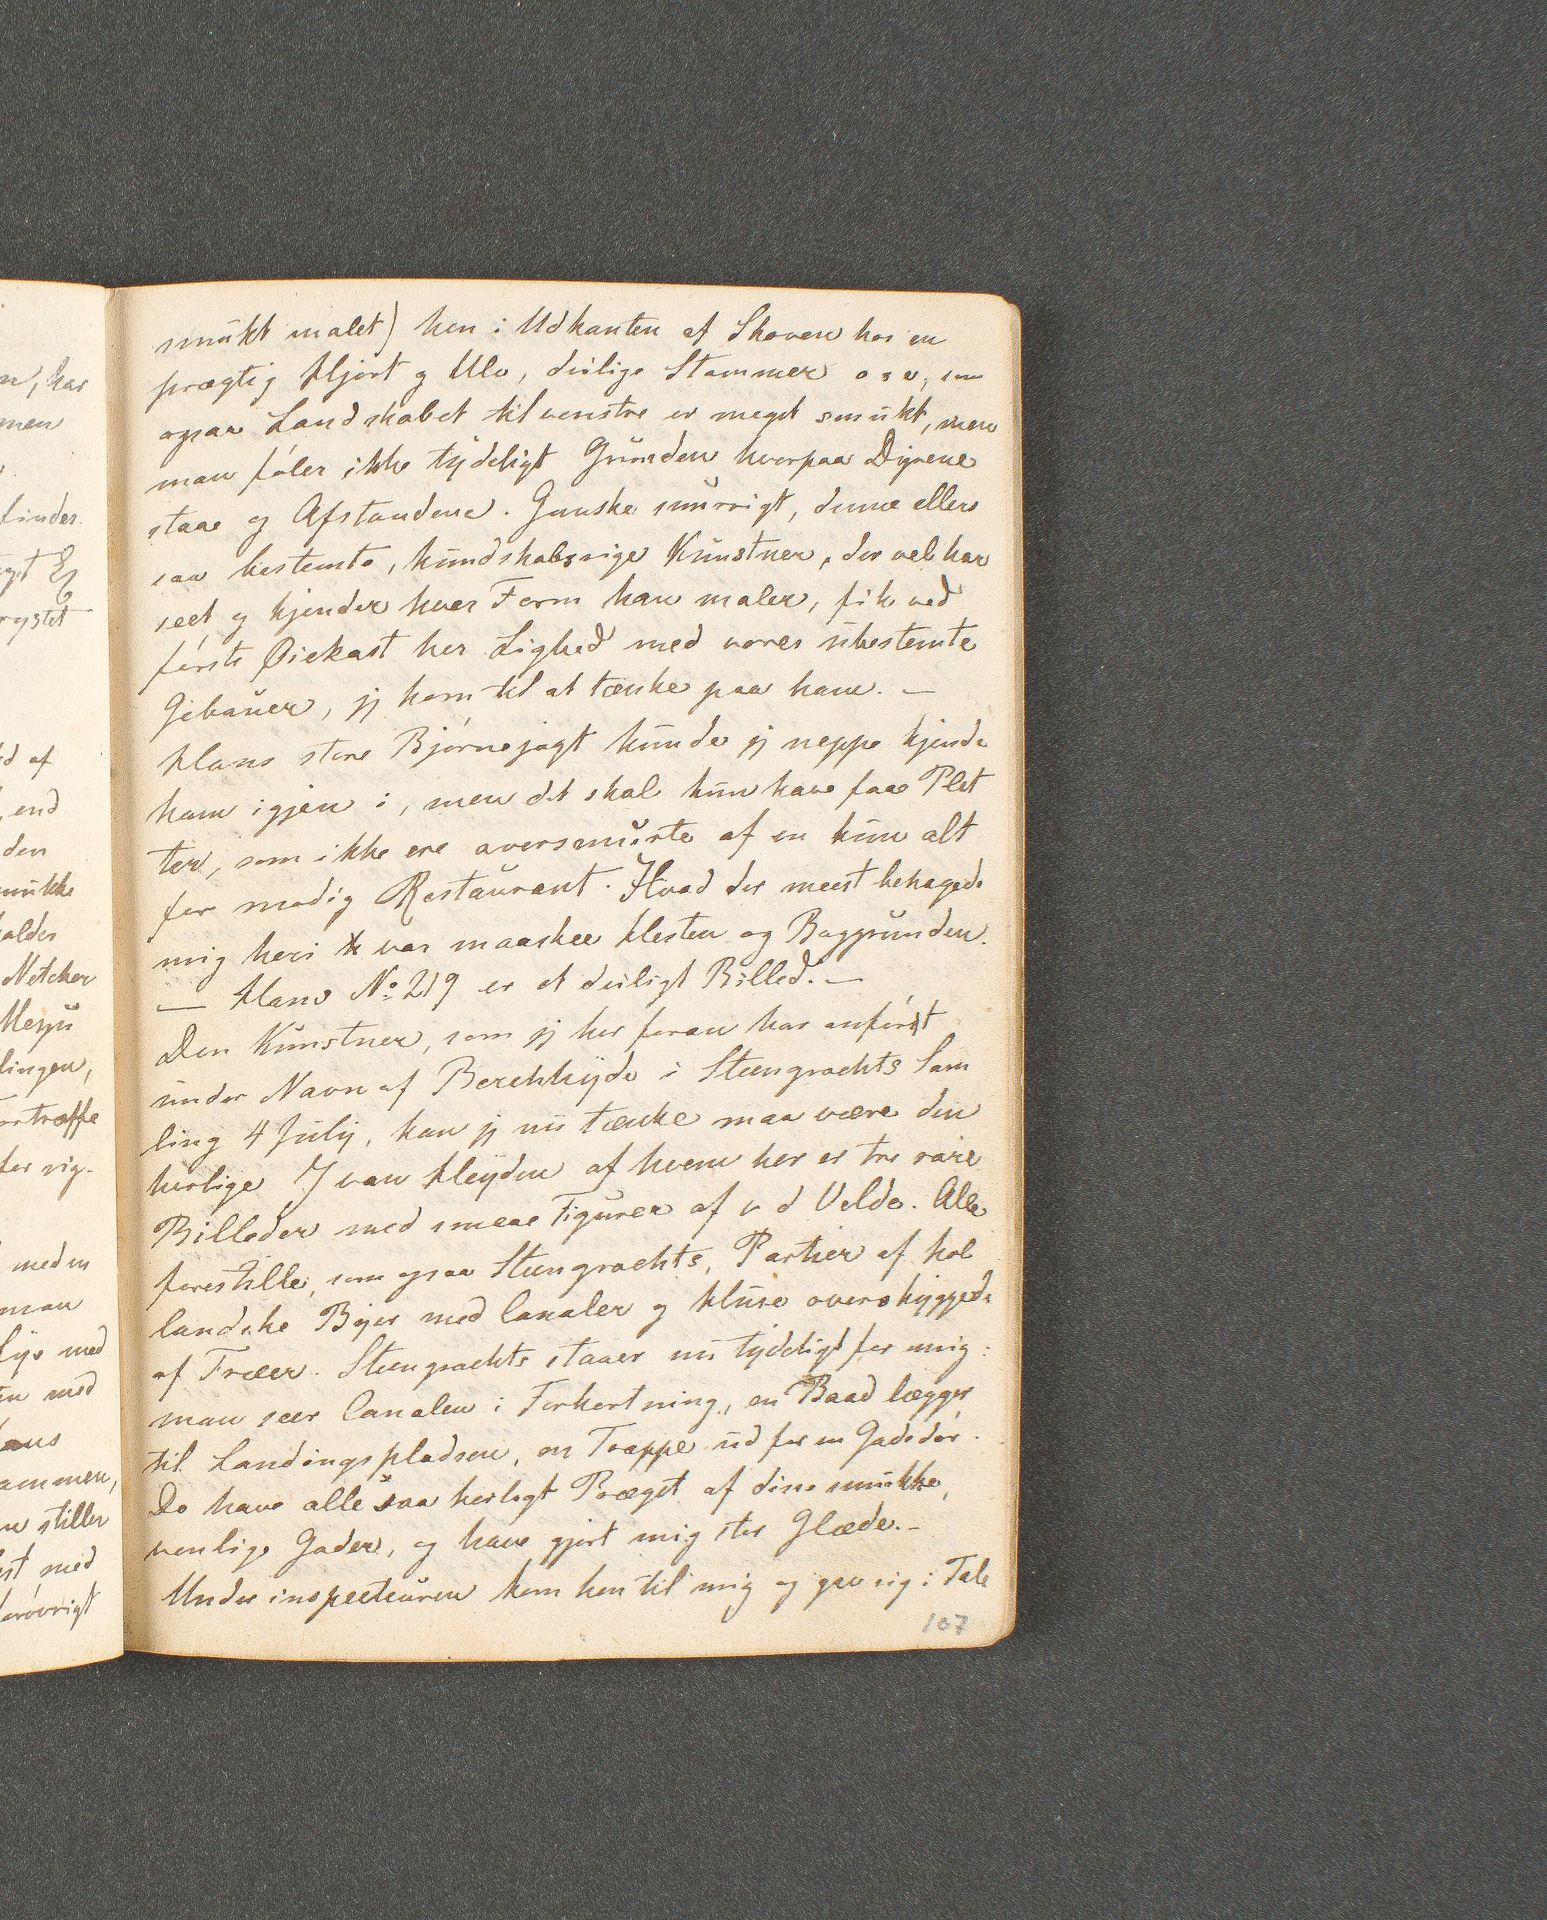 n, har
men
findes
rystet
d af
, end
den
mukke
alder
Netcher
Mesyu
lingen,
rtræffe
for sig.
meden
man
Lys med
en med
ans
ammen,
stiller
st med
forøvrigt
smukt malet) hen i Udkanten af Skoven hos en
prægtig Hjort og Ulv, deilige Stammer o s v; som
ogsaa Landskabet til venstre er meget smukt, men
man føler ikke tydeligt Grunden hvorpaa Dyrene
staae og Afstandene. Ganske snurrigt, denne ellers
saa bestemte, kundskabsrige Kunstner, der vel har
seet og kjender hver Form han maler, fik ved
første Øiekast her Lighed med vores ubestemte
Gebauer, jeg kom til at tænke paa ham. —
Hans store Bjørnejagt kunde jeg neppe kjende
ham igjen i, men det skal kun have faae Plet
ter, som ikke ere oversmurte af en kun alt
for modig Restaurant. Hvad der meest behagede
mig heri var maaskee Hesten og Baggrunden.
— Hans No 219 er et deiligt Billed. —
Den Kunstner, som jeg her foran har anført
under Navn af Berckhyde i Steengrachts Sam
ling 4 July, kan jeg nu tænke maa være den
herlige J van Heyden af hvem her er tre rare
Billeder med smaae Figurer af v d Velde. Alle
forestille, som ogsaa Steengrachts, Partier af hol
landske Byer med Canaler og Huse overskyggede
af Træer. Steengrachts staaer nu tydeligt for mig:
man seer Canalen i Forkortning, en Baad lægger
til Landingspladsen, en Trappe ud for en Gadedør.
De have alle saa herligt Præget af disse smukke,
venlige Gader, og have gjort mig stor Glæde. —
Underinspecteuren kom hen til mig og gav sig i Tale
107